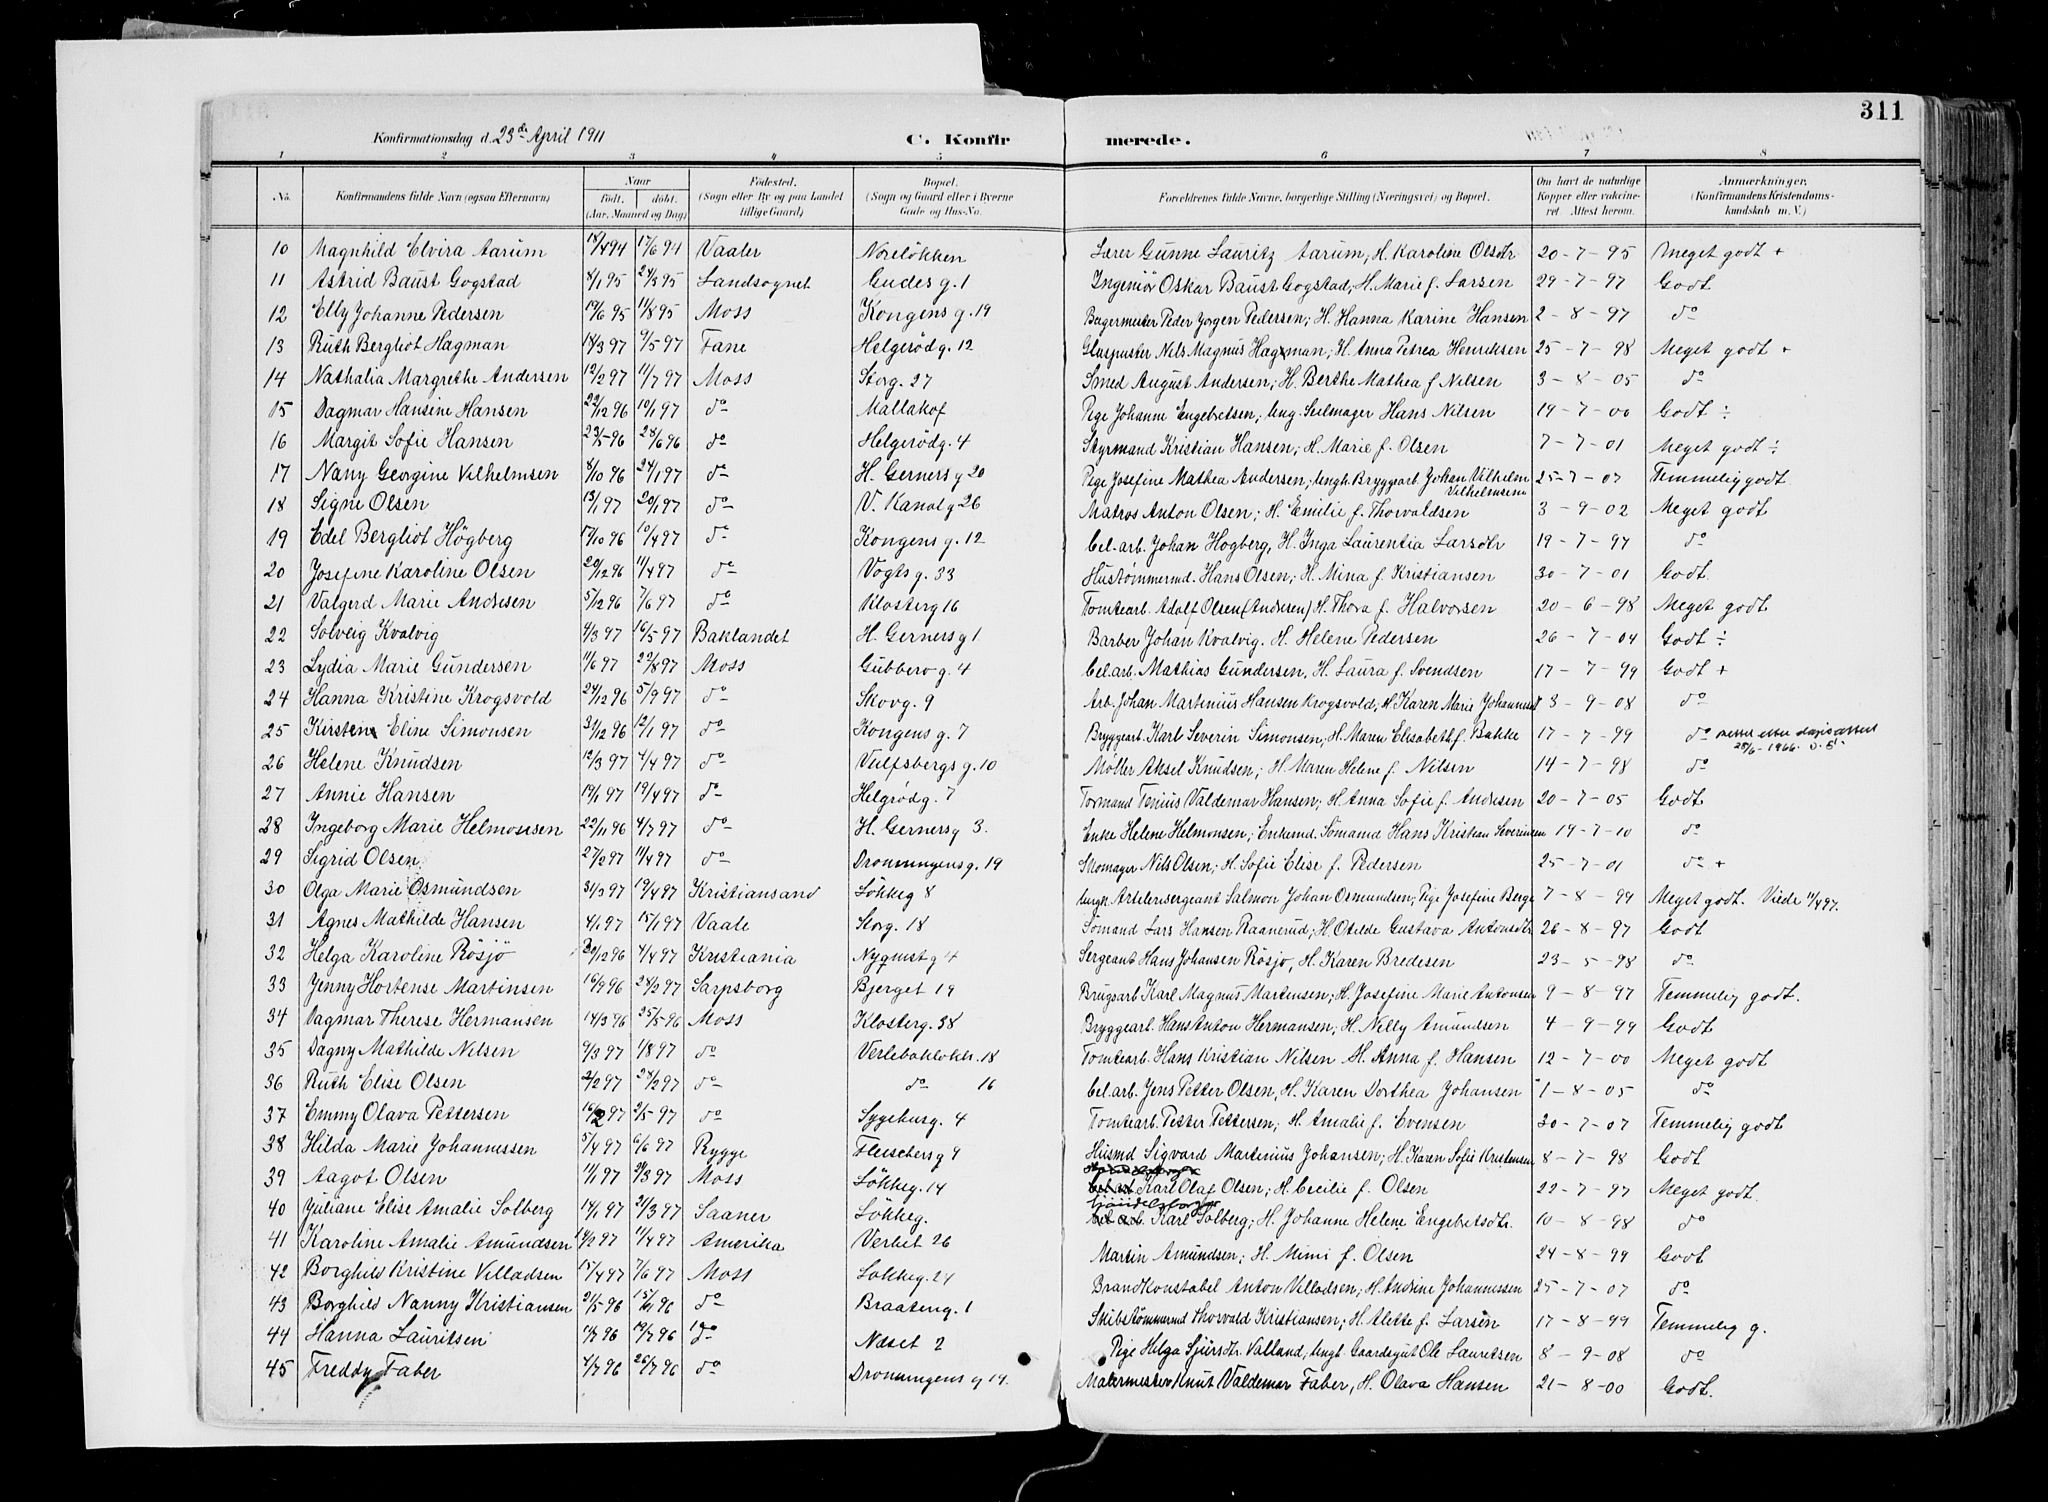 311
Konfirmationsdag d. 23de April 1911 C. Konfirmerede.
1 2 3 4 5 6 7 8
No. Konfirmandens fulde Navn (ogsaa Efternavn) Naar født. døbt. (Aar, Maaned og Dag) Fødested. (Sogn eller By og paa Landet tillige Gaard) Bopæl. (Sogn og Gaard eller i Byerne Gade og Hus-No. Forældrenes fulde Navne, borgerlige Stilling (Næringsvei) og Bopæl. Om havt de naturlige Kopper eller vakcineret Attest herom. Anmærkninger. (Konfirmandens Kristendomskundskab m. V.)
10 Magnhild Elvira Aarum 18/4 94 17/6 94 Vaaler Noreløkken Lærer Gunne Lauritz Aarum, H. Karoline Olsdtr 20-7-95 Meget godt +
11 Astrid Baust Gogstad 8/1 95 24/3 95 Landsognet Gudes g. 1 Ingeniør Oskar Baust Gogstad, H. Marie f. Larsen 29-7-97 Godt
12 Elly Johanne Pedersen 19/6 95 11/8 95 Moss Kongens g. 19 Bagermester Peder Jørgen Pedersen; H. Hanna Karine Hansen 2-8-97 do
13 Ruth Bergliot Hagman 14/3 97 9/5 97 Fane Helgerödg. 12 Glaspuster Nils Magnus Hagman; H. Anna Petrea Henriksen 25-7-98 Meget godt +
14 Nathalia Margrethe Andersen 12/2 97 11/7 97 Moss Storg. 27 Smed August Andersen; H. Berthe Mathea f. Nilsen 3-8-05 do
15 Dagmar Hansine Hansen 22/12 96 10/1 97 do Mallakof Pige Johanne Engebretsen; Ung. Seilmager Hans Nilsen 19-7-00 Godt ÷
16 Margit Sofie Hansen 23/5 96 28/6 96 do Helgerödg. 4 Styrmand Kristian Hansen; H. Marie f. Olsen 7-7-01 Meget godt ÷
17 Nany Georgine Vilhelmsen 8/10 96 24/1 97 do H. Gerners g 20 Pige Josefine Mathea Andersen; Ungk. Bryggearb. Johan Vilhelm Vilhelmsen 25-7-07 Temmelig godt
18 Signe Olsen 13/1 97 20/1 97 do V. Kanal g 26 Matros Anton Olsen; H. Emilie f. Thorvaldsen 3-9-02 Meget godt
19 Edel Bergliot Högberg 17/10 96 10/4 97 do Kongens g. 12 Cel. arb. Johan Högberg, H. Inga Laurentia Larsdtr 19-7-97 do
20 Josefine Karoline Olsen 20/12 96 11/4 97 do Vogts g. 33 Hustømmermd. Hans Olsen; H. Mina f. Kristiansen 30-7-01 Godt.
21 Valgerd Marie Andresen 5/12 96 7/6 97 do Klosterg 16 Tomtearb. Adolf Olsen (Andresen) H. Thora f. Halvorsen 20-6-98 Meget godt
22 Solveig Kvalvig 4/3 97 16/5 97 Baklandet H. Gerners g 1 Barber Johan Kvalvig. H. Helene Pedersen 26-7-04 Godt ÷
23 Lydia Marie Gundersen 11/6 97 22/8 97 Moss Gubbero g. 4 Cel. arb. Mathias Gundersen, H. Laura f. Svendsen 17-7-99 Godt +
24 Hanna Kristine Krogsvold 24/12 96 5/9 97 do Skovg. 9 Arb. Johan Martinius Hansen Krogsvold; H. Karen Marie 3-9-08 do
25 Kirsten Eline Simonsen 31/12 96 12/1 97 do Kongens g. 7 Bryggearb. Karl Severin Simonsen, H. Maren Elisabeth f. Bakke 17-7-99 do
26 Helene Knudsen 12/3 97 4/4 97 do Vulfsbergs g. 10 Møller Aksel Knudsen; H. Maren Helene f. Nilsen 14-7-98 do
27 Annie Hansen 19/1 97 19/4 97 do Helgrödg. 7 Formand Tenius Valdemar Hansen; H. Anna Sofie f. Andresen 20-7-05 Godt
28 Ingeborg Marie Helmonsen 22/11 96 4/7 97 do H. Gerners g 3. Enke Helene Helmonsen; Enkemd. Sømand Hans Kristian Severinsen 19-7-10 do
29 Sigrid Olsen 27/2 97 11/4 97 do Dronningens g. 19 Skomager Nils Olsen; H. Sofie Elise f. Pedersen 25-7-01 do +
30 Olga Marie Osmundsen 31/3 97 19/4 97 Kristiansand Løkkeg 8 Ungk. Artilerisergeant Salmon Johan Osmundsen, Pige Josefine Berge 7-8-99 Meget godt. Viede 11/4 97.
31 Agnes Mathilde Hansen 4/1 97 15/1 97 Vaale Storg. 18 Sømand Lars Hansen Raanerud; H. Otilde Gustava Antonsdtr 26-8-97 Godt
32 Helga Karoline Rösjö 20/12 96 4/4 97 Kristiania Nyqmst g 4 Sergeant Hans Johansen Rösjø, H. Karen Bredesen 23-5-98 do
33 Jenny Hortense Martinsen 16/9 96 24/2 97 Sarpsborg Bjerget 19 Brugsarb. Karl Magnus Martensen; H. Josefine Marie Antonsen 9-8-97 Temmelig godt.
34 Dagmar Therese Hermansen 14/3 96 25/5 96 Moss Klosterg. 38 Bryggearb. Hans Anton Hermansen; H. Nilly Amundsen 4-9-99 Godt
35 Dagny Mathilde Nilsen 9/3 97 1/8 97 do Verlebakløkk. 18 Tomtearb. Hans Kristian Nilsen H. Anna f. Hansen 12-7-00 Meget godt
36 Ruth Elise Olsen 2/2 97 28/2 97 do do 16 Cel. arb. Jens Petter Olsen, H. Karen Dorthea Johansen 1-8-05 do
37 Emmy Olava Pettersen 16/2 97 2/5 97 do Sygehusg. 4 Tomtearb. Petter Pettersen; H. Amalie f. Evensen 30-7-07 Temmelig godt
38 Hilda Marie Johannessen 5/4 97 6/6 97 Rygge Fleischers g 9 Husmd Sigvard Martinius Johansen; H. Karen Sofie Kristensen 8-7-98 Godt
39 Aagot Olsen 11/1 97 21/3 97 Moss Løkkeg. 14 Karl Olaf Olsen; H. Cecilie f. Olsen 22-7-97 Meget godt.
40 Juliane Elise Amalie Solberg 14/1 97 21/3 97 Saaner Løkkeg. Karl Solberg; H. Johanne Helene Engebretsdtr. 10-8-98 do
41 Karoline Amalie Amundsen 14/2 97 11/4 97 Amerika Verket 26 Martin Amundsen; H. Mimi f. Olsen 24-8-99 Godt
42 Borghild Kristine Villadsen 15/4 97 7/6 97 Moss Løkkeg. 24 Brandkonstabel Anton Villadsen; H. Andrine Johannessen 25-7-07 do
43 Borghild Nanny Kristiansen 21/5 96 15/11 96 do Braateng. 1 Skibstømmermd Thorvald Kristiansen; H. Alette f. Larsen 17-8-99 Temmelig g.
44 Hanna Lauritsen 11/7 96 19/7 96 do Næset 2 Pige Helga Sjursdtr. Valland, Ungk. Gaardsgut Ole Lauritsen 8-9-08 do
45 Freddy Faber 4/7 96 26/7 96 do Dronningens g 19. Malermester Knut Valdemar Faber, H. Olava Hansen 21-8-00 Godt.